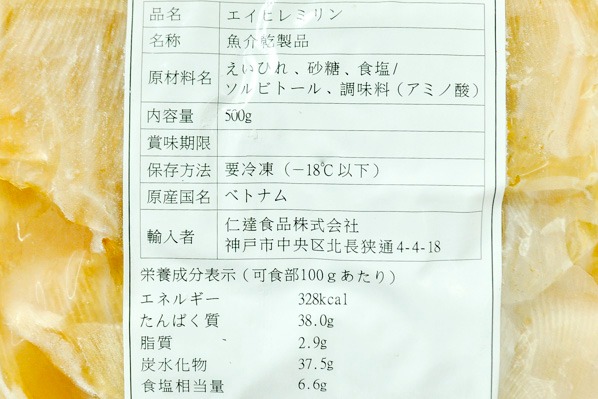 品名 エイヒレミリン
名称 魚介乾製品
原材料名 えいひれ、砂糖、食塩/
ソルビトール、調味料(アミノ酸)
内容量 500g
賞味期限
保存方法 要冷凍(-18℃以下)
原産国名 ベトナム
輸入者 仁達食品株式会社
神戸市中央区北長狭通4-4-18
栄養成分表示(可食部100gあたり)
エネルギー 328kcal
たんぱく質 38.0g
脂質 2.9g
炭水化物 37.5g
食塩相当量 6.6g